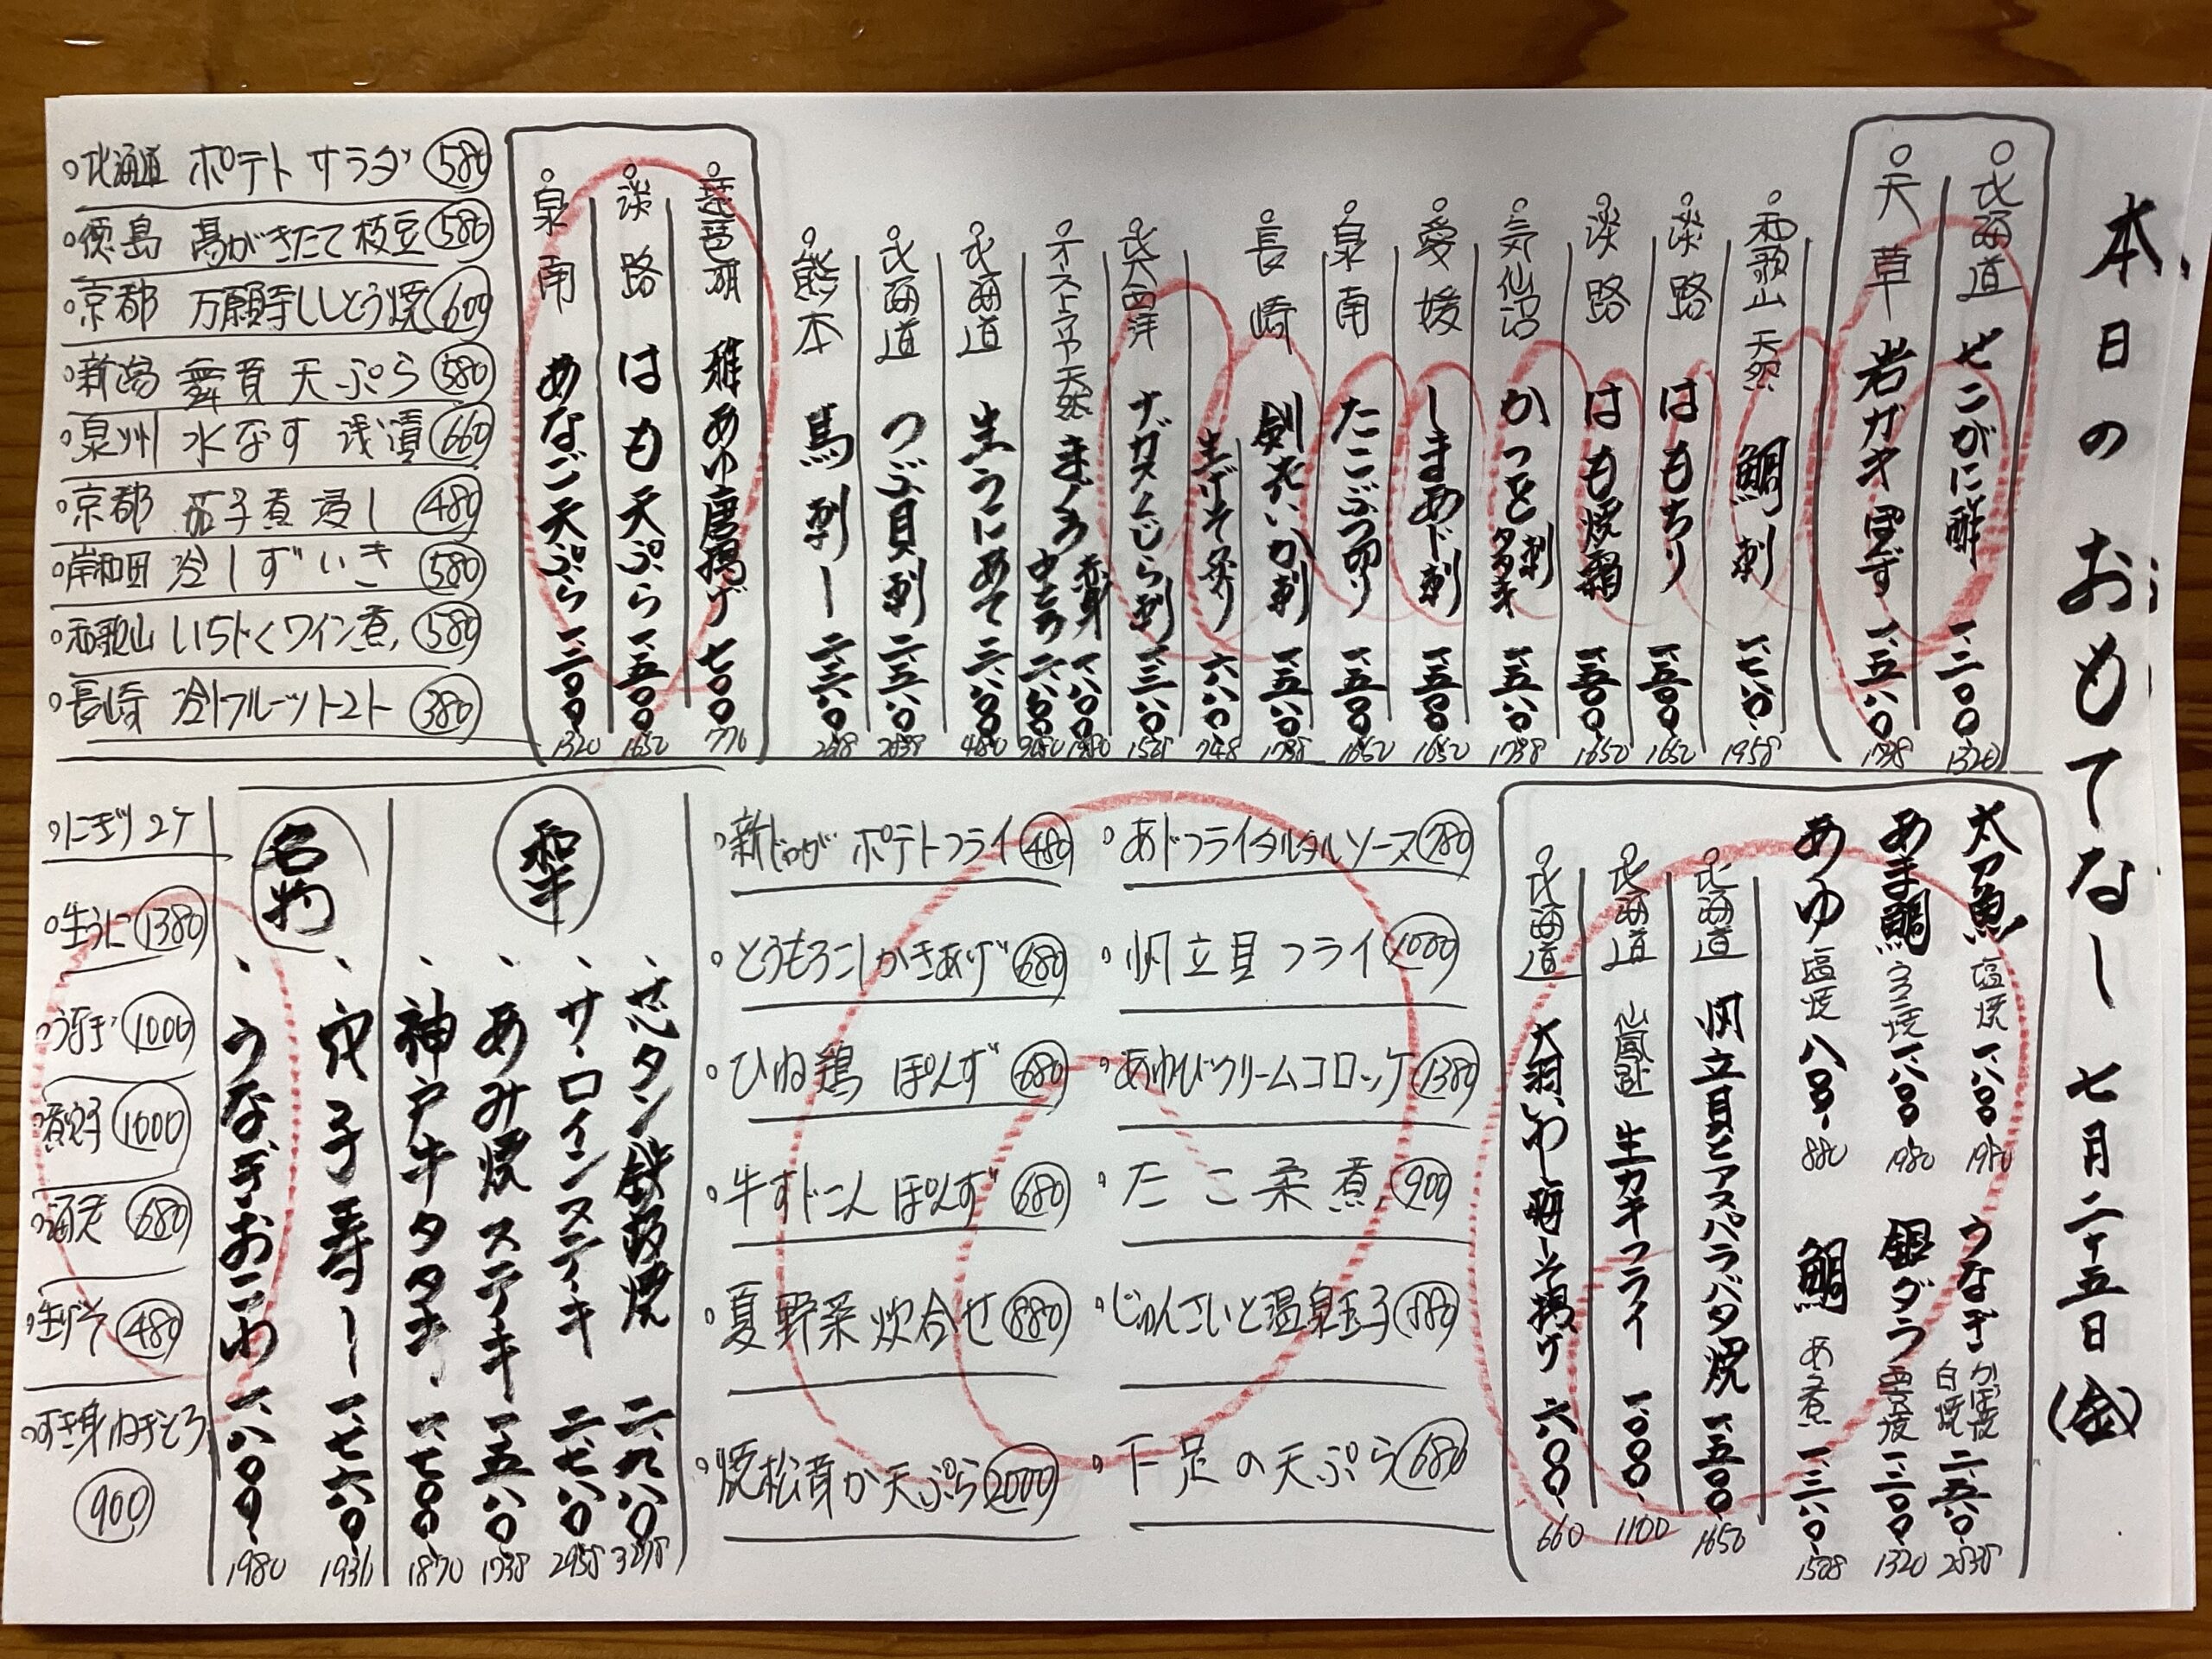 本日のおもてなし 七月二十五日(金)
北海道 せこがに酢 一、二〇〇 1320
天草 岩ガキぽんず 一、五八〇 1738
和歌山 天然 鯛刺 一、七八〇 1958
淡路 はもちり 一、五〇〇 1650
淡路 はも焼霜 一、五〇〇 1650
気仙沼 かつを刺 タタキ 一、五八〇 1738
愛媛 しまあじ刺 一、五〇〇 1650
泉南 たこぶつ切り 一、五〇〇 1650
長崎 剣先いか刺 一、五八〇 1738
生げそ炙り 六八〇 748
北大西洋 ナガスくじら刺
天然 まぐろ 赤身 一、八〇〇 1980
中とろ
北海道 生うにあて
北海道 つぶ貝刺
熊本 馬刺し
琵琶湖 稚あゆ唐揚げ 七〇〇 770
淡路 はも天ぷら 一、五〇〇 1650
泉南 あなご天ぷら 一、二〇〇 1320
北海道 ポテトサラダ 580
徳島 湯がきたて枝豆 580
京都 万願寺ししとう焼 600
新潟 舞茸天ぷら 580
泉州 水なす 浅漬 660
京都 茄子煮浸し 480
岸和田 冷しずいき 580
和歌山 いちじくワイン煮 580
長崎 冷しフルーツトマト 380
太刀魚 塩焼 一、八〇〇 1980
あま鯛 一、八〇〇 1980
あゆ 塩焼 八〇〇 880
うなぎ かば焼 白焼
銀ダラ 西京焼 一、二〇〇 1320
鯛 あら煮
北海道 帆立貝とアスパラバタ焼 一、五〇〇 1650
北海道 仙鳳趾 生カキフライ 一、〇〇〇 1100
北海道 大羽いわし梅しそ揚げ 六〇〇 660
あじフライタルタルソース 780
帆立貝フライ 1080
あわびクリームコロッケ 1380
たこ柔煮 900
じゅんさいと温泉玉子 880
下足の天ぷら 680
新じゃが ポテトフライ 480
とうもろこしかきあげ 680
ひね鶏 ぽんず 680
牛すじこん ぽんず 680
夏野菜炊合せ 880
焼松茸か天ぷら 2000
和牛
芯タン鉄板焼 二、九八〇 3278
サーロインステーキ
あみ焼ステーキ 一、五八〇 1738
神戸牛タタキ 一、七〇〇 1870
名物
穴子寿し 一、七六〇 1936
うなぎおこわ 一、八〇〇 1980
にぎり2ケ
生うに 1380
うなぎ 1000
煮穴子 1000
680
生げそ 480
すき身ねぎとろ
900